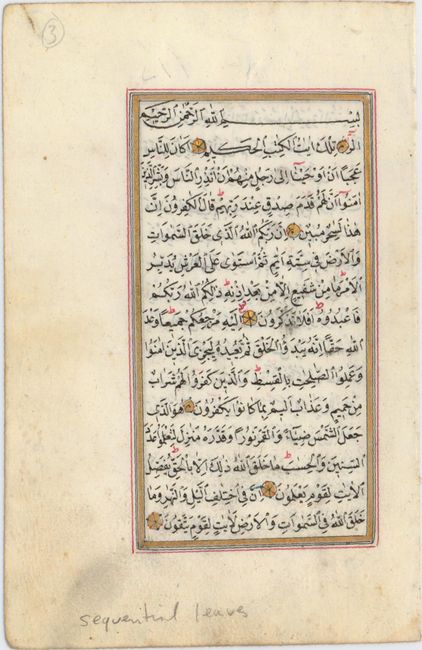 3
بسم الله الرحمن الرحيم
الر تلك ايت الكتب الحكيم اكان للناس
عجبا ان اوحينا الى رجل منهم ان انذر الناس وبشر الذين
امنوا ان لهم قدم صدق عند ربهم قال الكفرون ان
هذا لسحر مبين ان ربكم الله الذى خلق السموات
والارض فى ستة ايام ثم استوى على العرش يدبر
الامر ما من شفيع الا من بعد اذنه ذلكم الله ربكم
فاعبدوه افلا تذكرون اليه مرجعكم جميعا وعد
الله حقا انه يبدؤا الخلق ثم يعيده ليجزى الذين امنوا
وعملوا الصلحت بالقسط والذين كفروا لهم شراب
من حميم وعذاب اليم بما كانوا يكفرون هو الذى
جعل الشمس ضياء والقمر نورا وقدره منازل لتعلموا عدد
السنين والحساب ما خلق الله ذلك الا بالحق يفصل
الايت لقوم يعلمون ان فى اختلف اليل والنهر وما
خلق الله فى السموات والارض لايت لقوم يتقون
sequential leaves